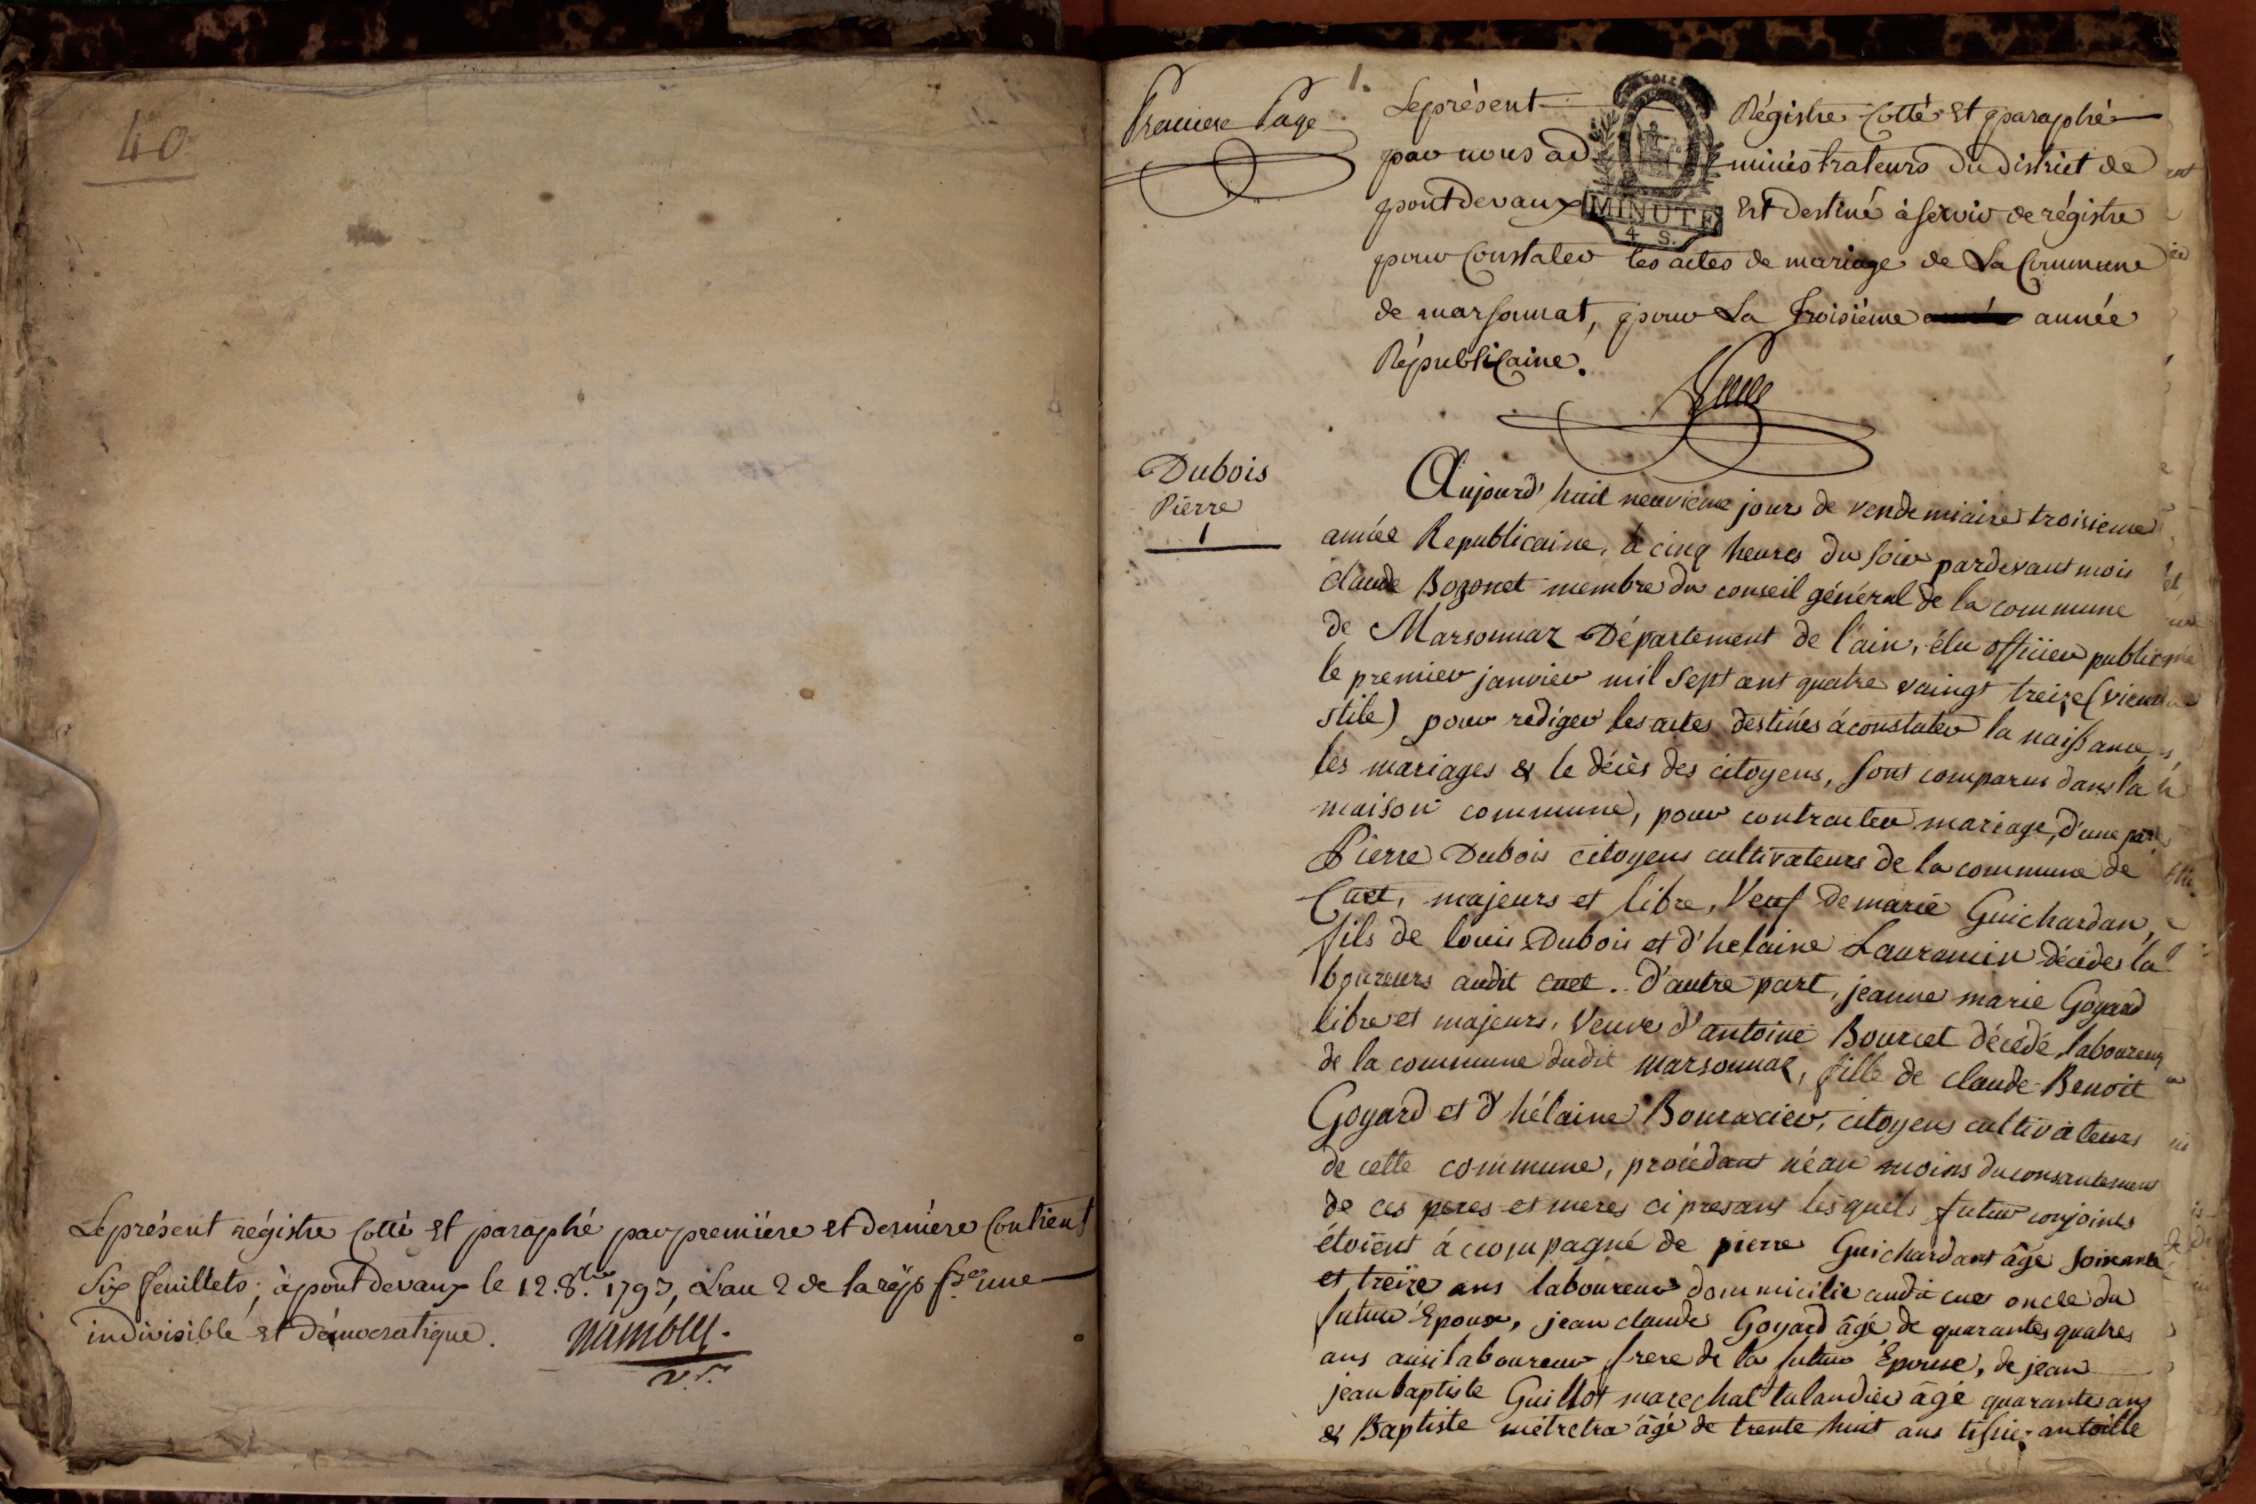 40
Le présent régistre Cotté et paraphé par premiére et derniére Contient
Six feuillets, à pont devaux le 12. 8.bre 1793, L'an 2 de la rép fse une
indivisible et démocratique.
Premiere Page
1.
Le présent Régistre Cotté et paraphé
par nous administrateurs du District de
pontdevaux Est destiné à servir de régistre
MINUTE
4 S.
pour Constater les actes de mariage de La Commune
de marsonnat, pour La Troisième année
RépubliCaine.
Dubois
Pierre
1
Aujourd'huit neuvieme jours de vendemiaire troisieme
année Republicaine, à cinq heures du soir pardevant mois
claude Bozonet membre du conseil général de la commune
de Marsonnaz Département de l'ain, élu officier public
le premier janvier mil sept cent quatre vaingt treize (vieux
stile) pour rediger les actes destinés à constater la naissance,
les mariages & le décès des citoyens, sont comparus dans la
maison commune, pour contracter mariage, d'une part
Pierre Dubois citoyens cultivateurs de la commune de
Cuet, majeurs et libre, Veuf de marie Guichardan,
fils de louis Dubois et d'helaine Lauramin décédes la
boureurs audit cuet. D'autre part, jeanne marie Goyard
libre et majeurs, Veuve d'antoine Bourcet décédé, laboureur
de la commune dudit marsonnaz, fille de claude Benoit
Goyard et d'hélaine Bouracier, citoyens cultivateurs
de cette commune, procédant néau moins du consantement
de ces peres et meres ci presant lesquels futur conjoints
étoient áccompagné de pierre Guichardant âgé soixante
et treize ans laboureur dommicilié audit cuet oncle du
futur Epoux, jean claude Goyard âgé de quarantes quatres
ans ausi laboureur frere de la futur Epouse, de jean
jean baptiste Guillot marechal talandier âgé quarantes ans
& Baptiste métretra âgé de trente huit ans tisier antoille